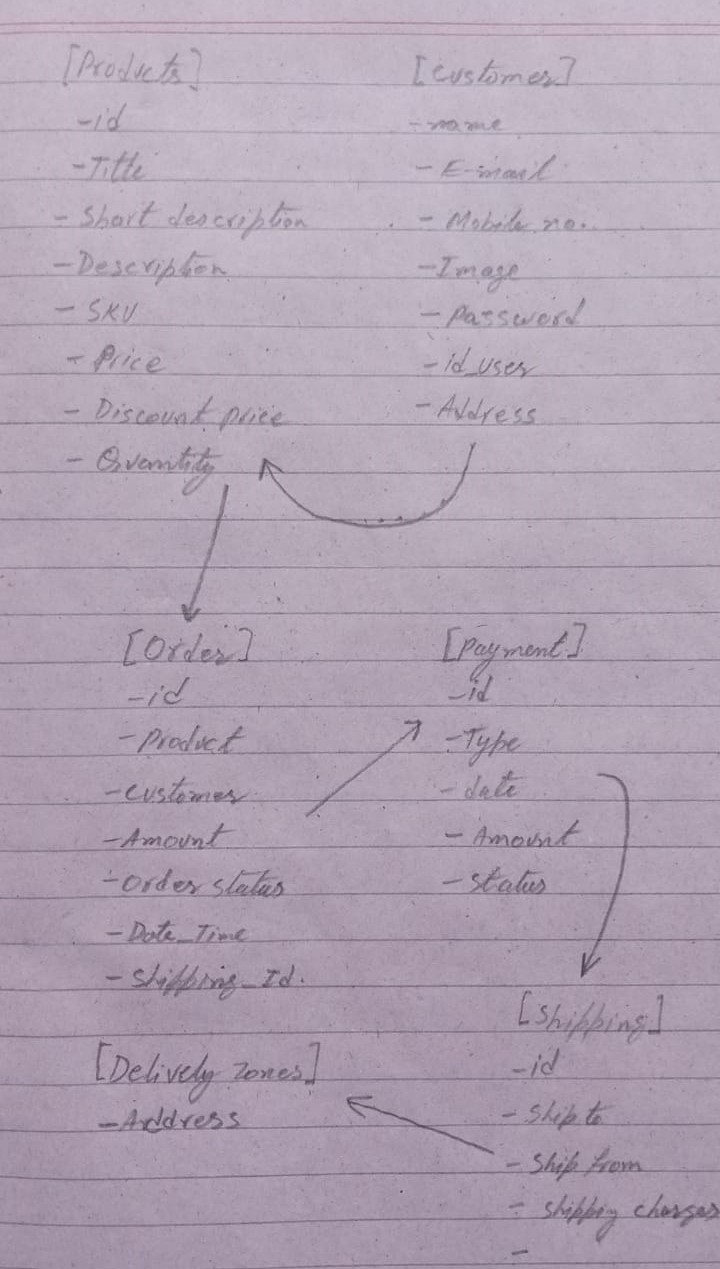 [Products]
-id
-Title
- Short description
- Description
- SKU
- Price
- Discount price
- Quentity
[Customer]
- name
- E-mail
- Mobile no.
- Image
- Password
- id_user
- Address
[Order]
-id
- Product
- Customer
- Amount
- Order status
- Date_Time
- Shipping_Id.
[Payment]
-id
- Type
- date
- Amount
- Status
[Shipping]
-id
- Ship to
- Ship from
- shippig charges
-
[Delively zones]
- Address